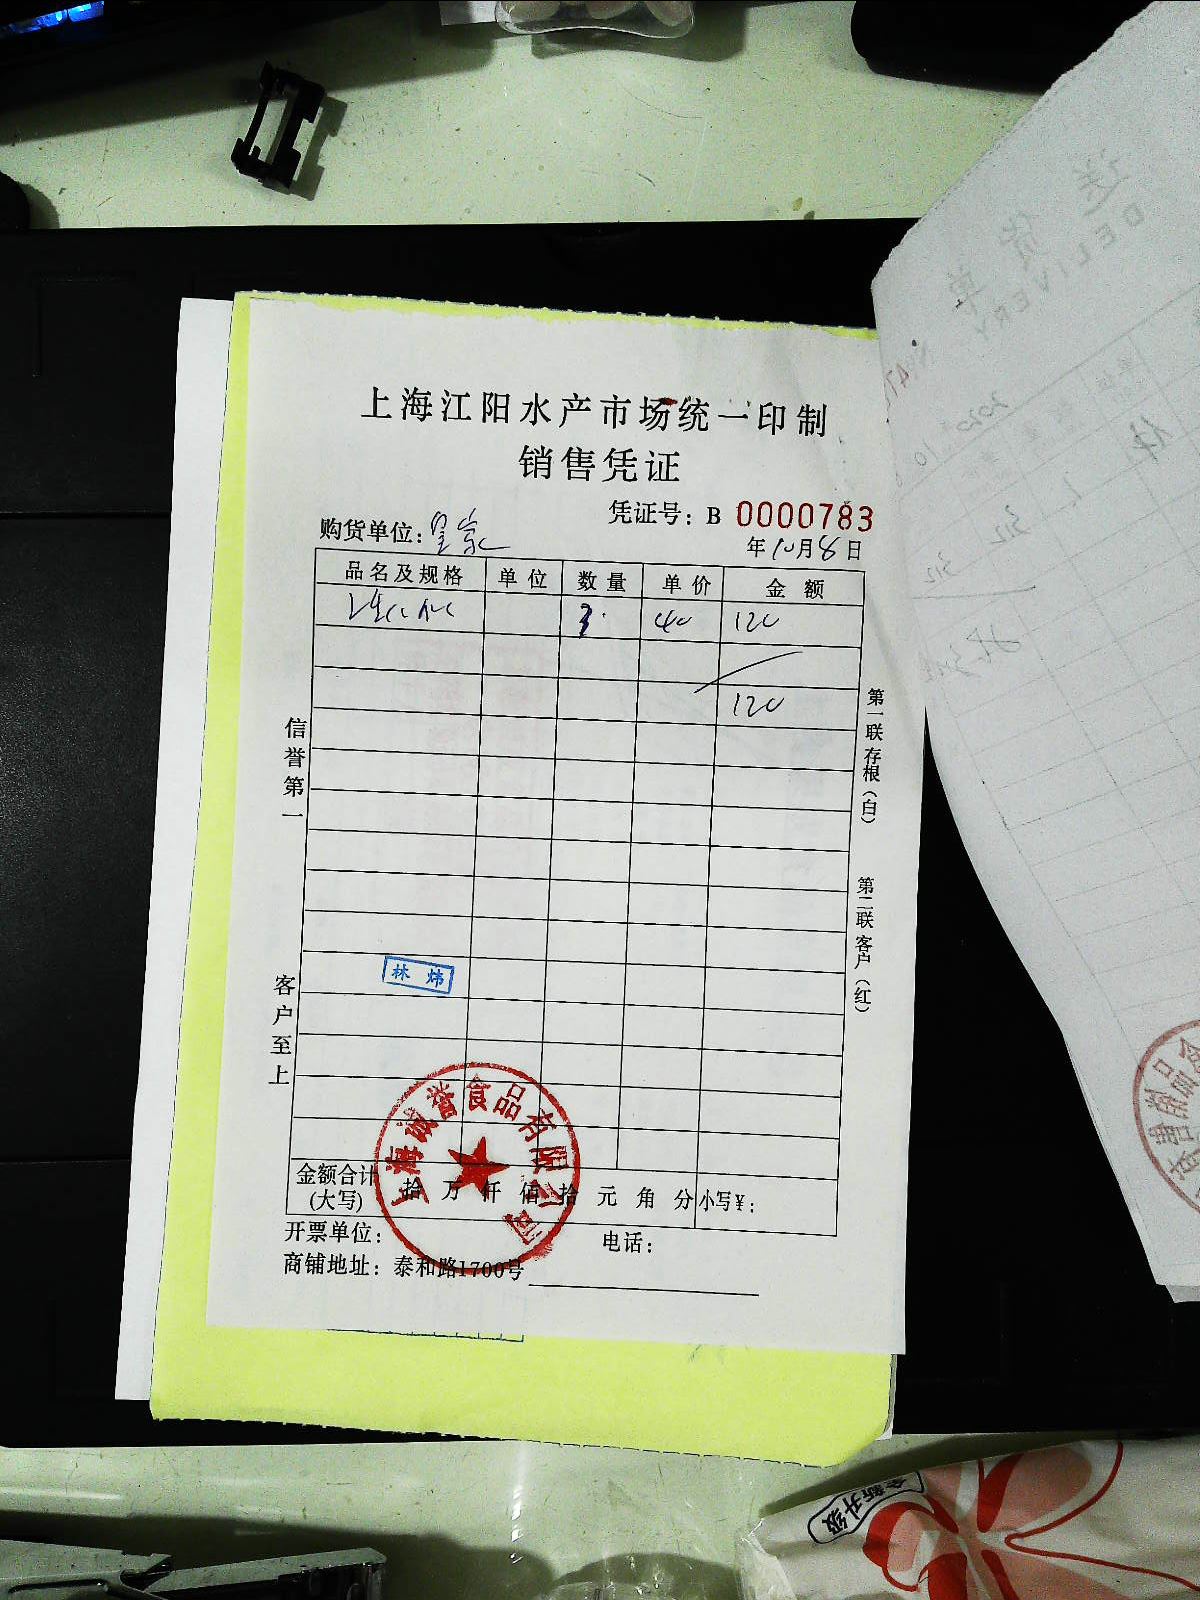 上海江阳水产市场统一印制
销售凭证
凭证号：B 0000783
购货单位：皇家
年10月8日
品名及规格 单位 数量 单价 金额
3 40 120
120
信誉第一
客户至上
第一联存根（白）
第二联客户（红）
林炜
上海诚誉食品有限公司
金额合计(大写) 拾 万 仟 佰 拾 元 角 分 小写¥：
开票单位： 电话：
商铺地址：泰和路1700号
送货单
DELIVERY
全新升级